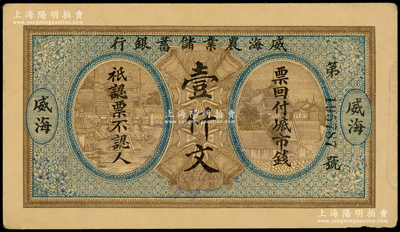 上海陽明拍賣
www.yangmingauction.com
威海農業儲蓄銀行
第
號
票回付城市錢
壹仟文
祇認票不認人
威海
威海
上海陽明拍賣
www.yangmingauction.com